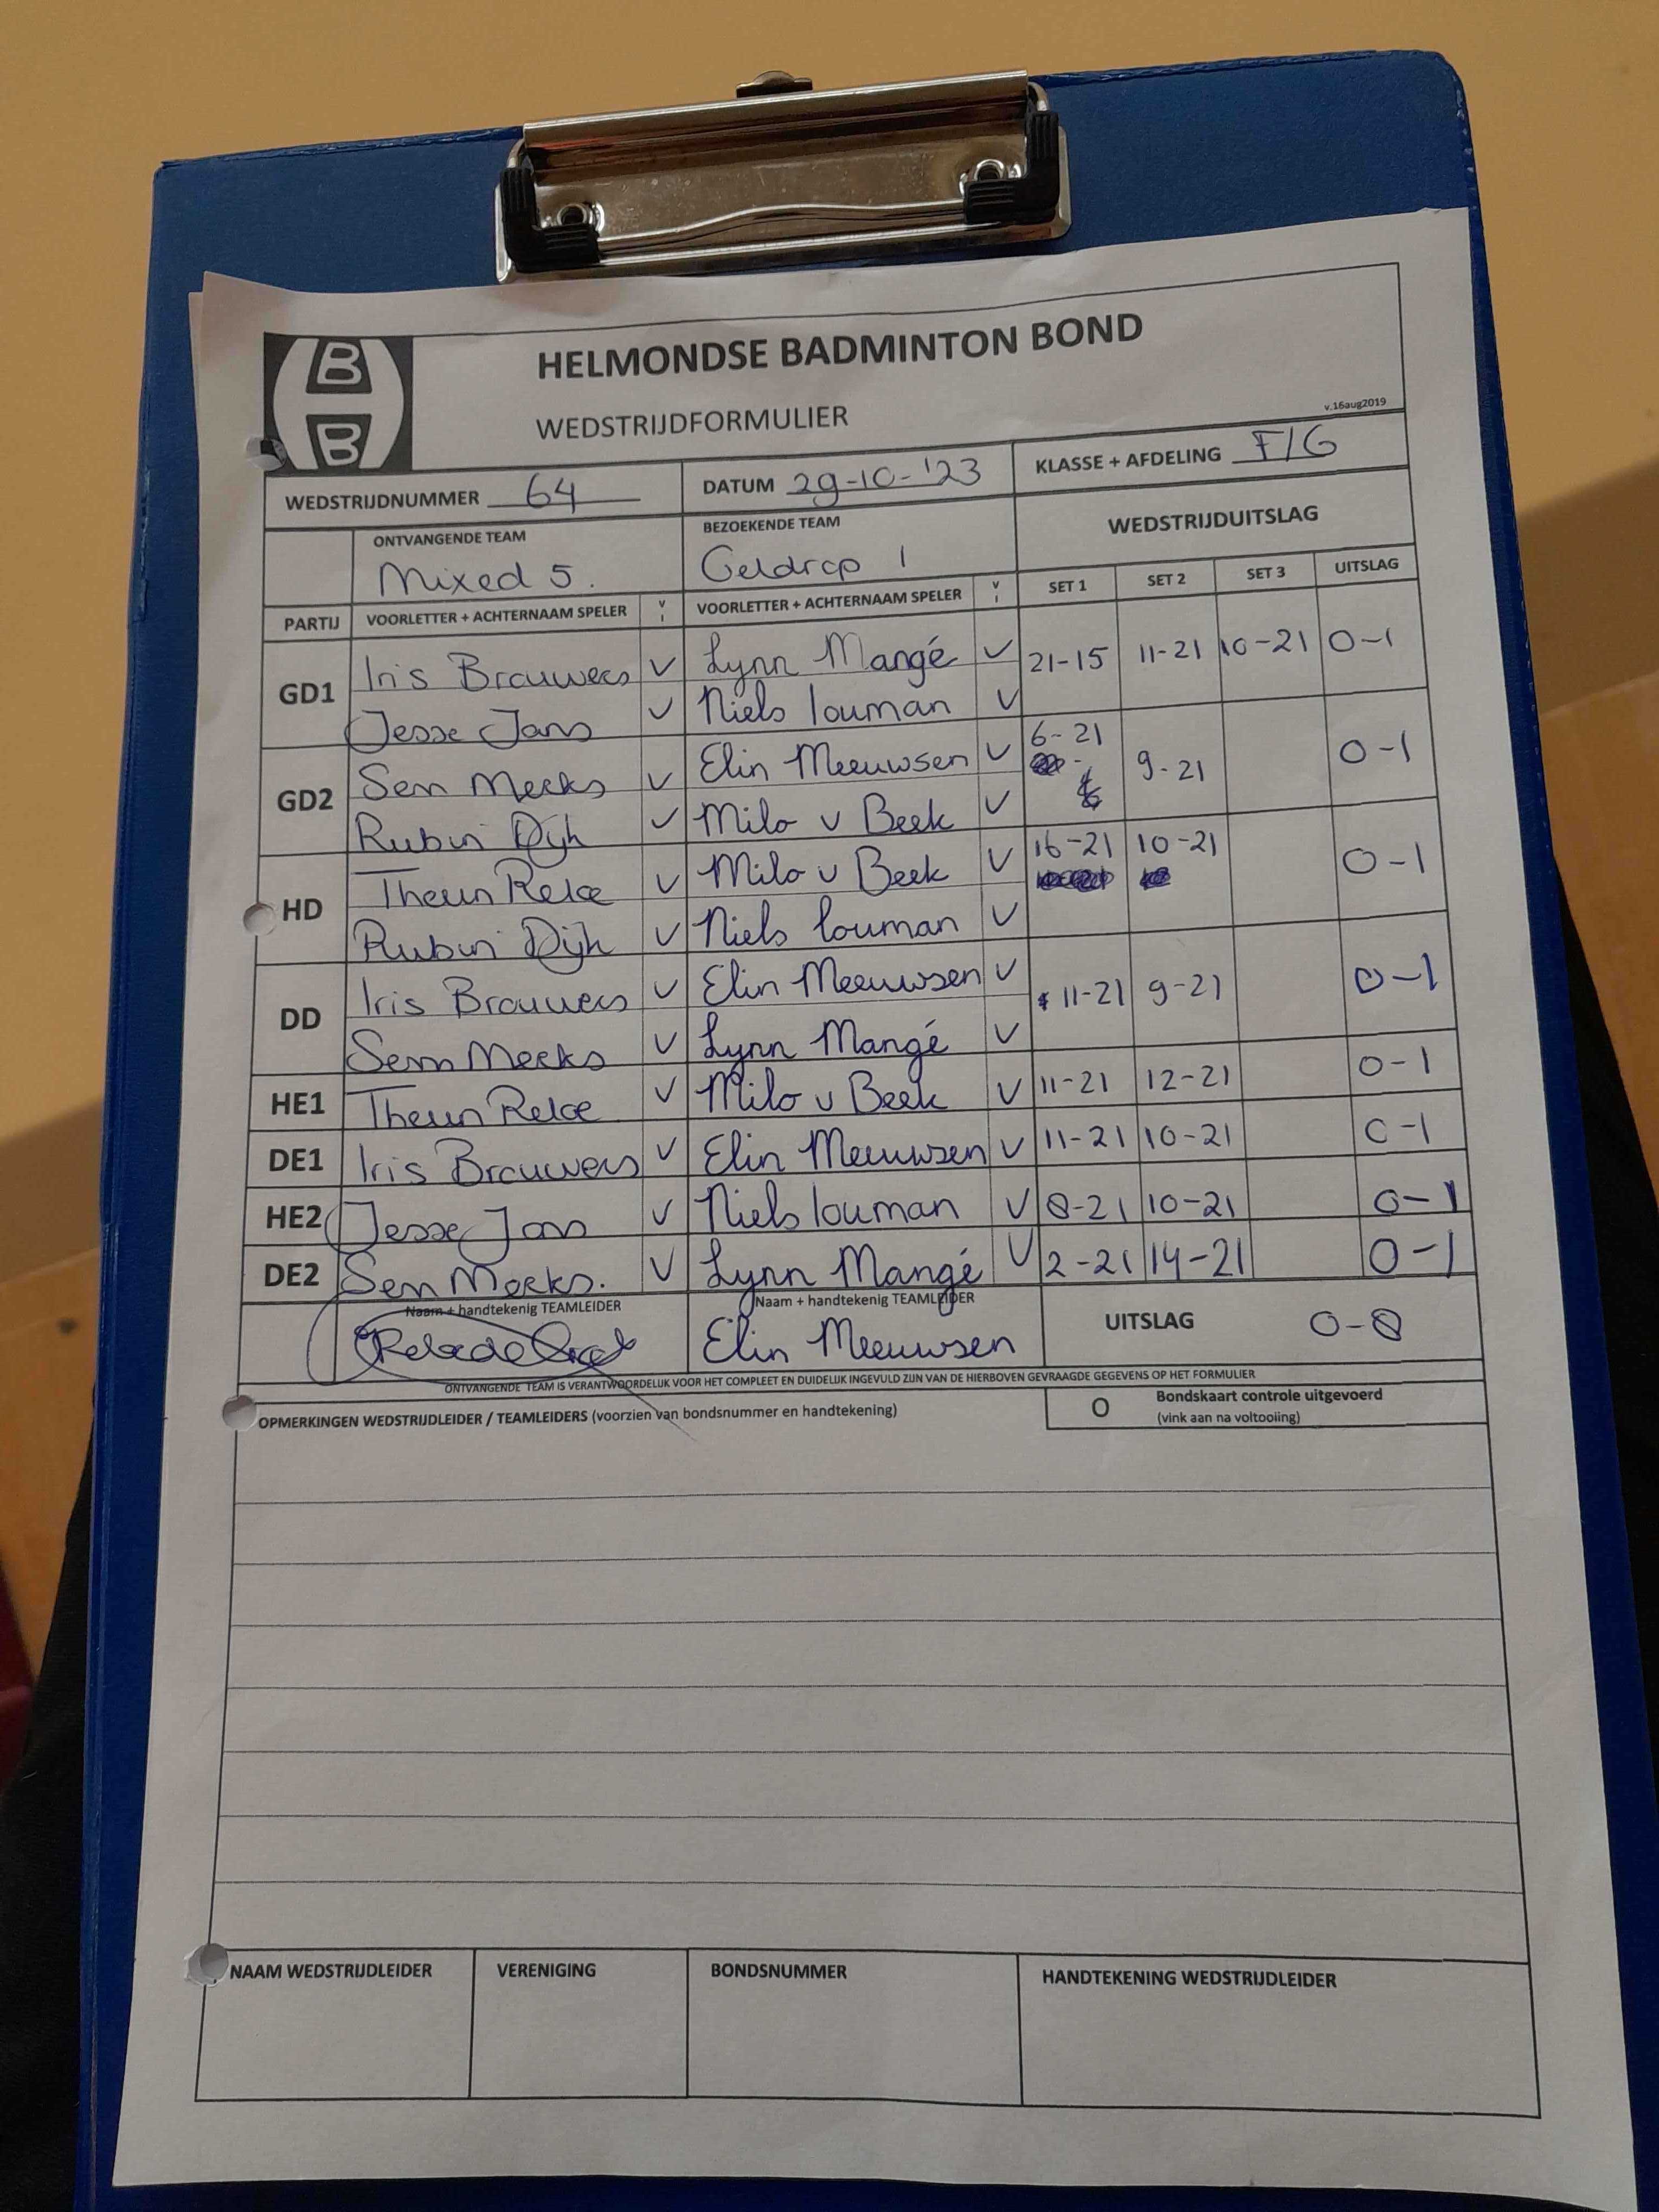 B
B
HELMONDSE BADMINTON BOND
WEDSTRIJDFORMULIER
v.16aug2019
WEDSTRIJDNUMMER 64 DATUM 29-10-'23 KLASSE + AFDELING F/G
ONTVANGENDE TEAM BEZOEKENDE TEAM WEDSTRIJDUITSLAG
Mixed 5. Geldrop 1
PARTIJ VOORLETTER + ACHTERNAAM SPELER V I VOORLETTER + ACHTERNAAM SPELER V I SET 1 SET 2 SET 3 UITSLAG
GD1 Iris Brouwers V Lynn Mangé V 21-15 11-21 10-21 0-1
Jesse Jans V Niels Louman V
GD2 Sen Meeks V Elin Meeuwsen V 6-21 9-21 0-1
Rubin Dijk V Milo v Beek V
HD Theun Relce V Milo v Beek V 16-21 10-21 0-1
Rubin Dijk V Niels Louman V
DD Iris Brouwers V Elin Meeuwsen V 11-21 9-21 0-1
Sem Meeks V Lynn Mangé V
HE1 Theun Relce V Milo v Beek V 11-21 12-21 0-1
DE1 Iris Brouwers V Elin Meeuwsen V 11-21 10-21 0-1
HE2 Jesse Jans V Niels Louman V 8-21 10-21 0-1
DE2 Sen Meeks. V Lynn Mangé V 2-21 14-21 0-1
Naam + handtekenig TEAMLEIDER Naam + handtekenig TEAMLEIDER
Elin Meeuwsen UITSLAG 0-8
ONTVANGENDE TEAM IS VERANTWOORDELIJK VOOR HET COMPLEET EN DUIDELIJK INGEVULD ZIJN VAN DE HIERBOVEN GEVRAAGDE GEGEVENS OP HET FORMULIER
OPMERKINGEN WEDSTRIJDLEIDER / TEAMLEIDERS (voorzien van bondsnummer en handtekening)
O Bondskaart controle uitgevoerd
(vink aan na voltooiing)
NAAM WEDSTRIJDLEIDER VERENIGING BONDSNUMMER HANDTEKENING WEDSTRIJDLEIDER